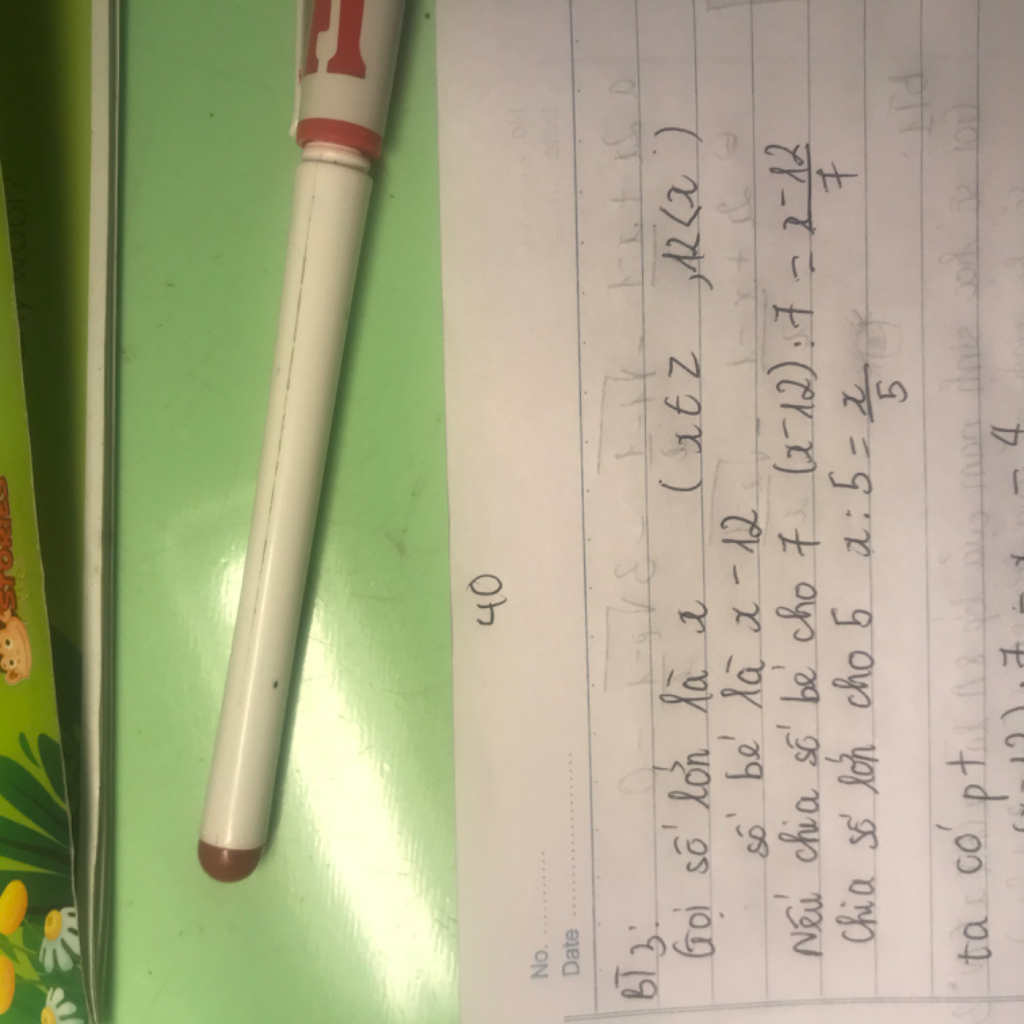 STORIES
40
No.
Date
BT 3:
Gọi số lớn là x (x ∈ Z , 12 < x )
số bé là x - 12
Nếu chia số bé cho 7 (x-12) : 7 = x-12/7
Chia số lớn cho 5 x : 5 = x/5
ta có pt